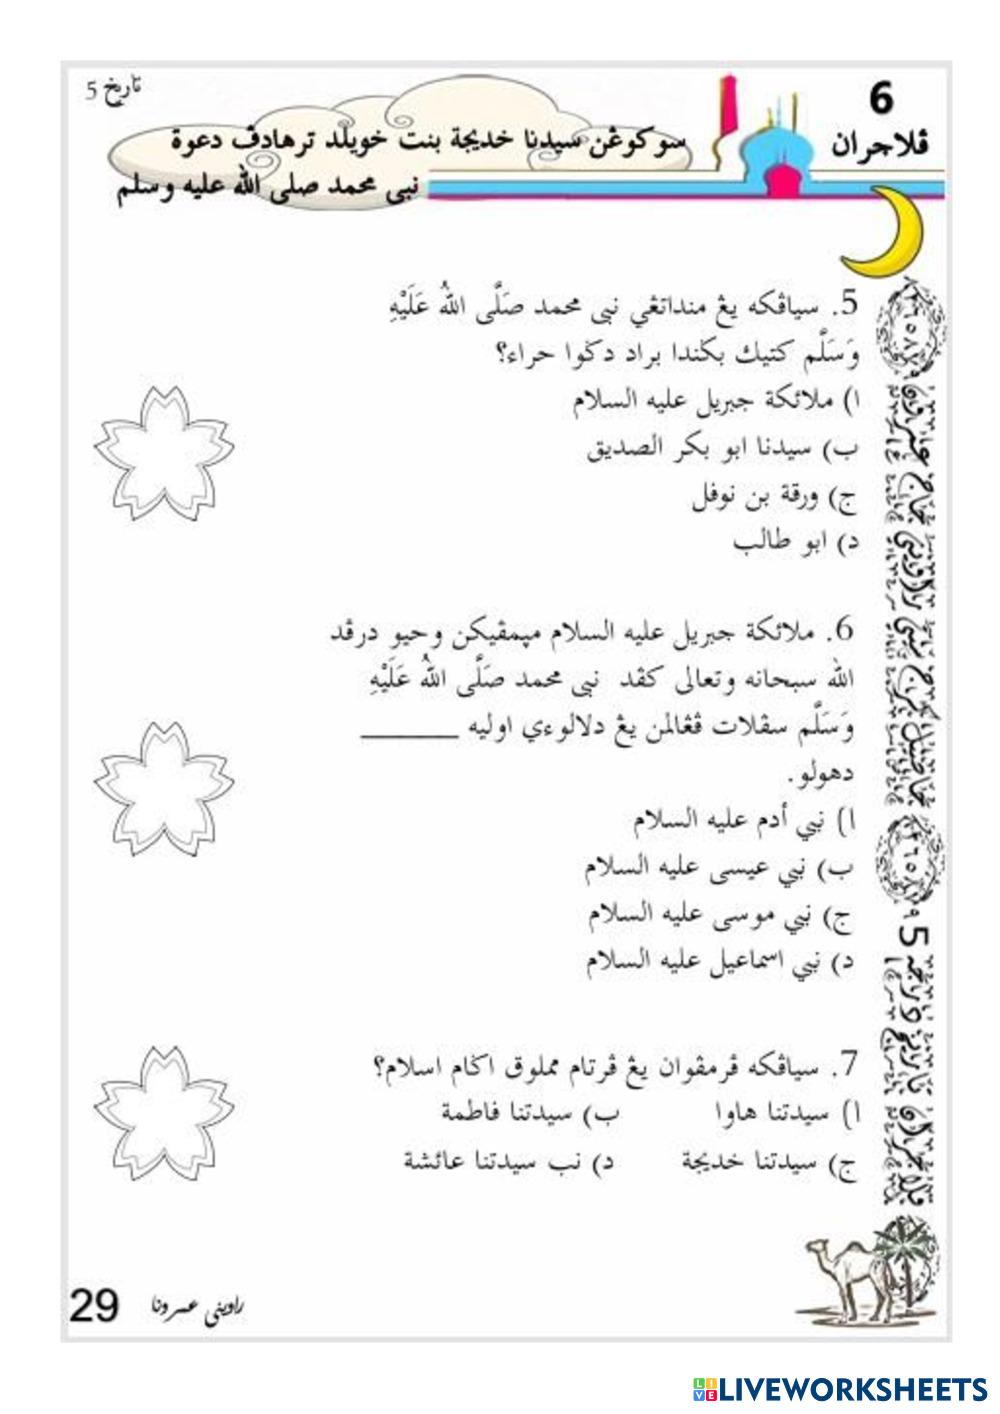 تاريخ 5
6
ڤلاجران
سوكوڠن سيدنا خديجة بنت خويلد ترهادڤ دعوة
نبي محمد صلى الله عليه وسلم
5. سياڤكه يڠ منداتڠي نبي محمد صَلَّى اللهُ عَلَيْهِ
وَسَلَّم كتيك بݢيندا براد دݢوا حراء؟
ا) ملائكة جبريل عليه السلام
ب) سيدنا ابو بكر الصديق
ج) ورقة بن نوفل
د) ابو طالب
6. ملائكة جبريل عليه السلام مپمڤيكن وحيو درڤد
الله سبحانه وتعالى كڤد نبي محمد صَلَّى اللهُ عَلَيْهِ
وَسَلَّم سڤرت ڤڠالمن يڠ دلالوءي اوليه ________
دهولو.
ا) نبي أدم عليه السلام
ب) نبي عيسى عليه السلام
ج) نبي موسى عليه السلام
د) نبي اسماعيل عليه السلام
7. سياڤكه ڤرمڤوان يڠ ڤرتام مملوق اݢام اسلام؟
ا) سيدتنا هاوا ب) سيدتنا فاطمة
ج) سيدتنا خديجة د) نب سيدتنا عائشة
29
LIVEWORKSHEETS